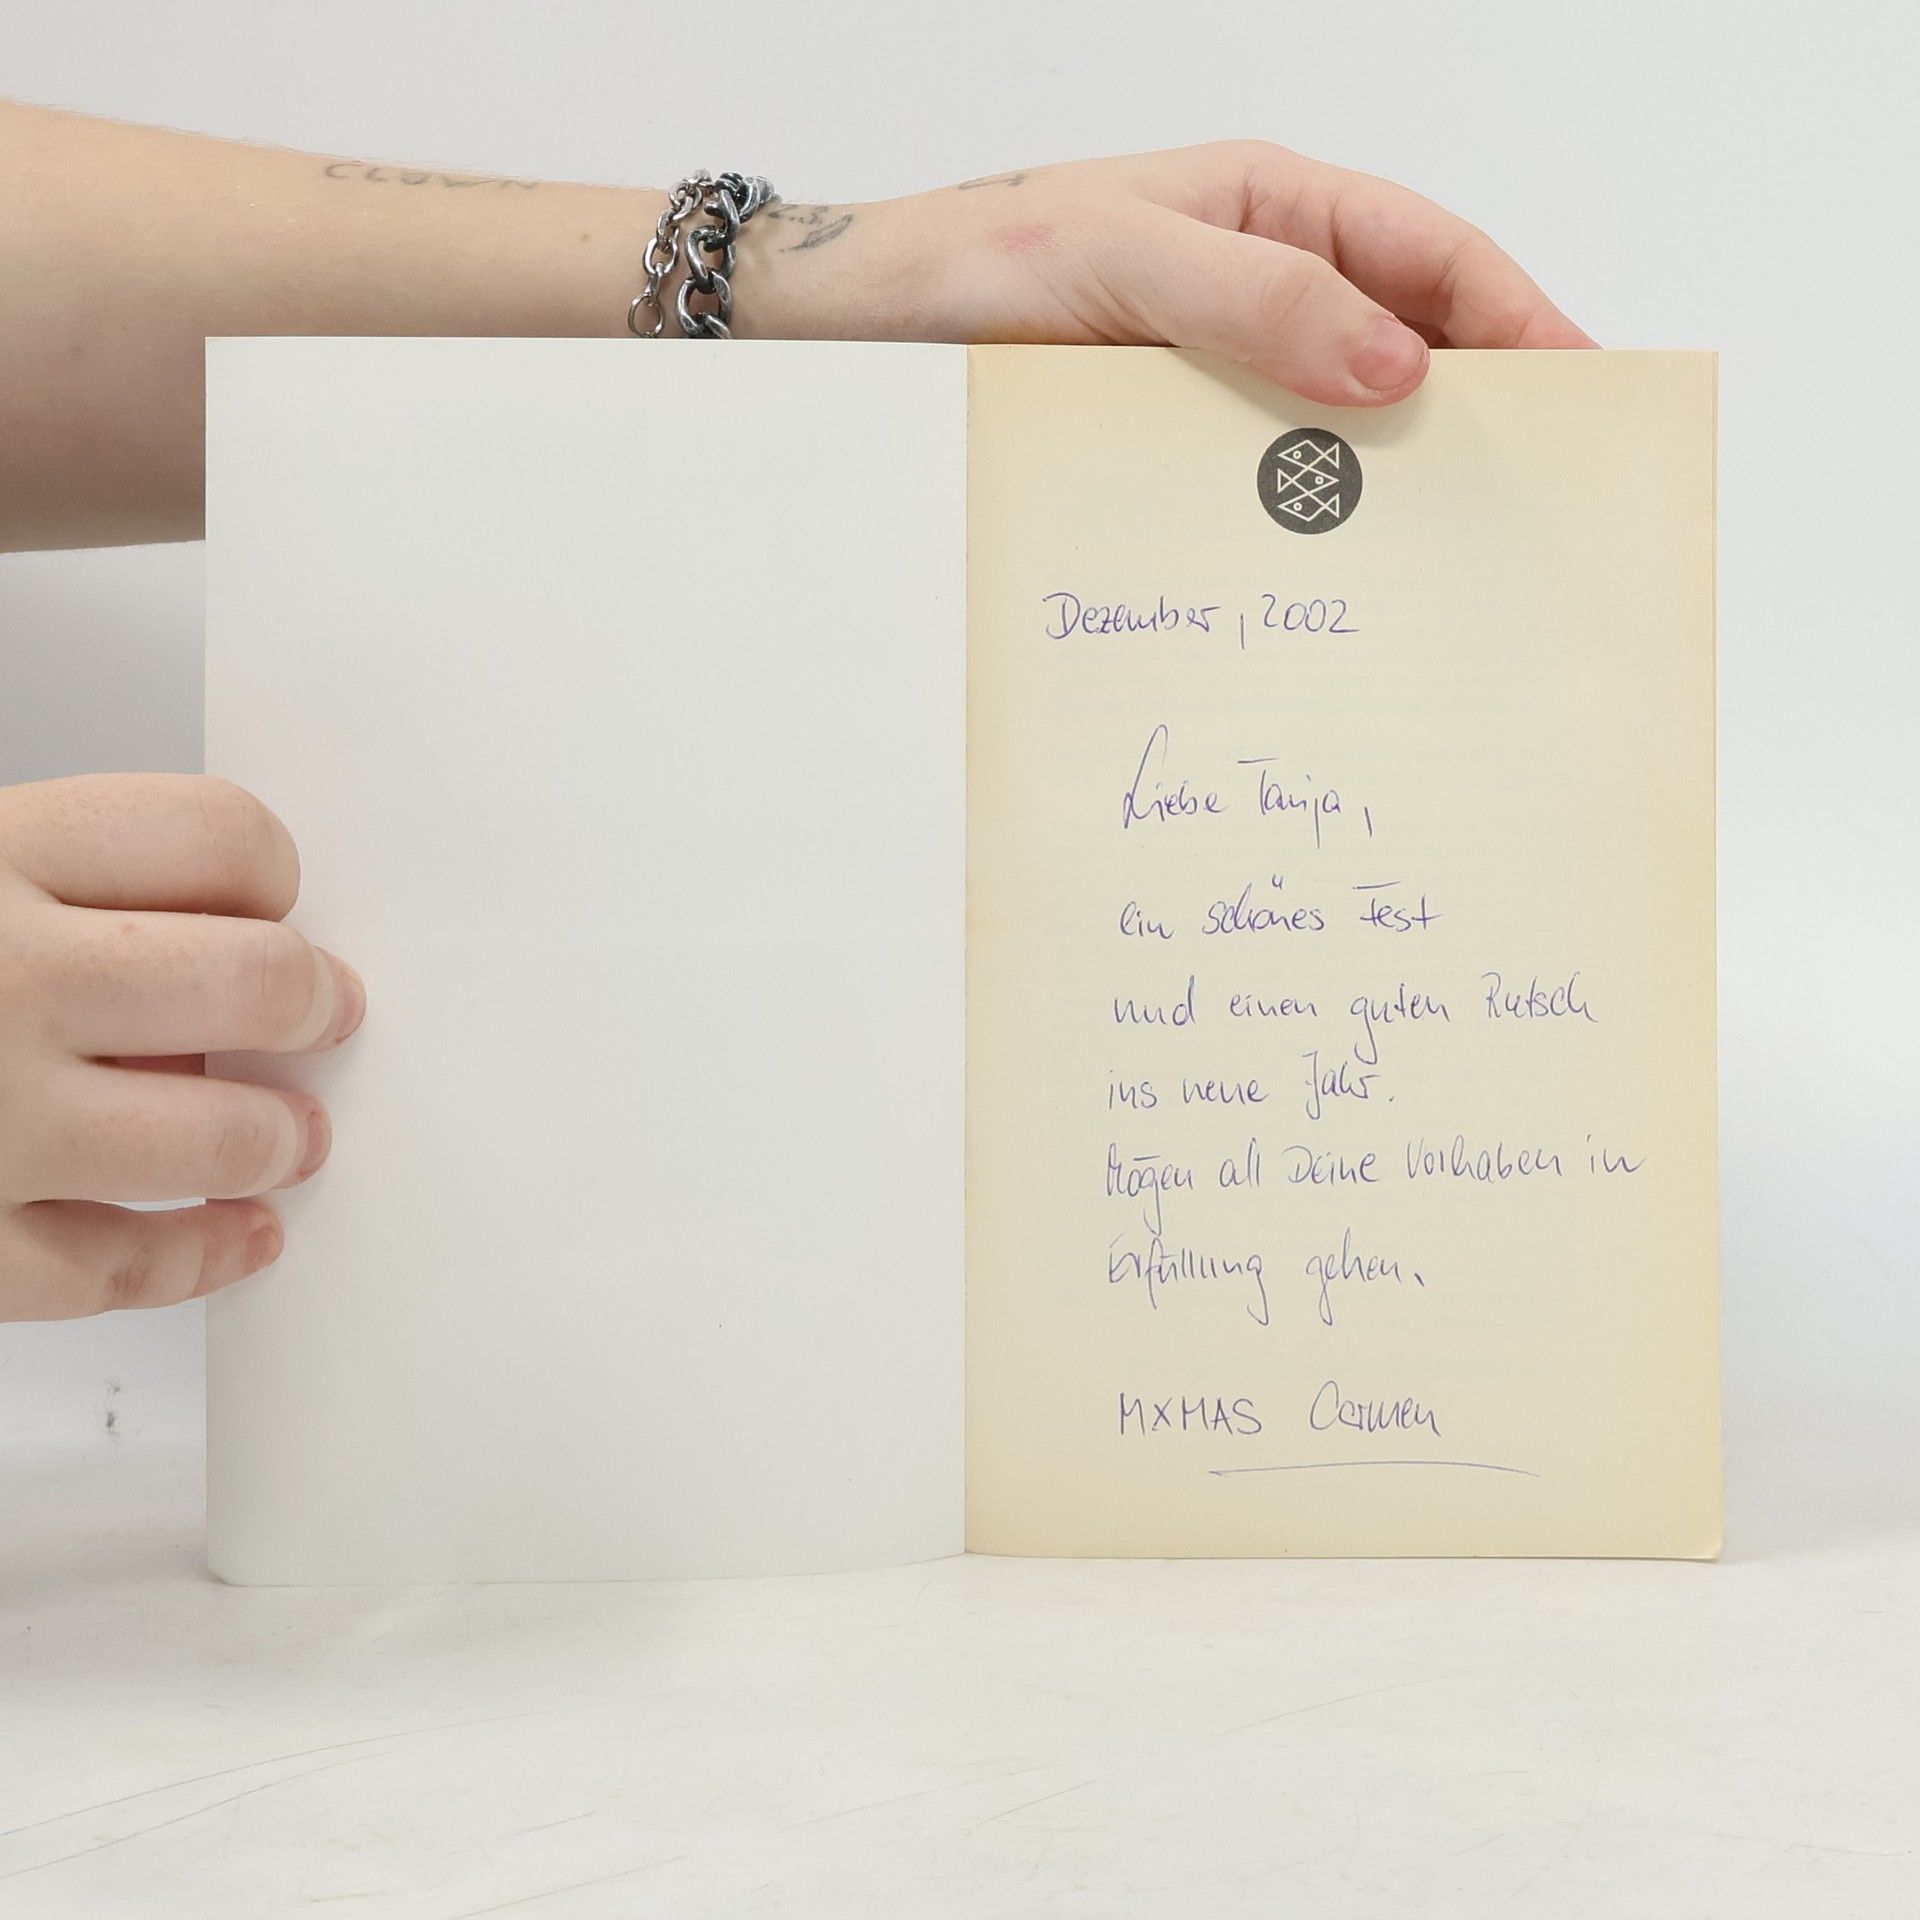 CLOWN
Dezember, 2002
Liebe Tanja,
ein schönes Fest
und einen guten Rutsch
ins neue Jahr.
Mögen all Deine Vorhaben in
Erfüllung gehen.
MXMAS Carmen